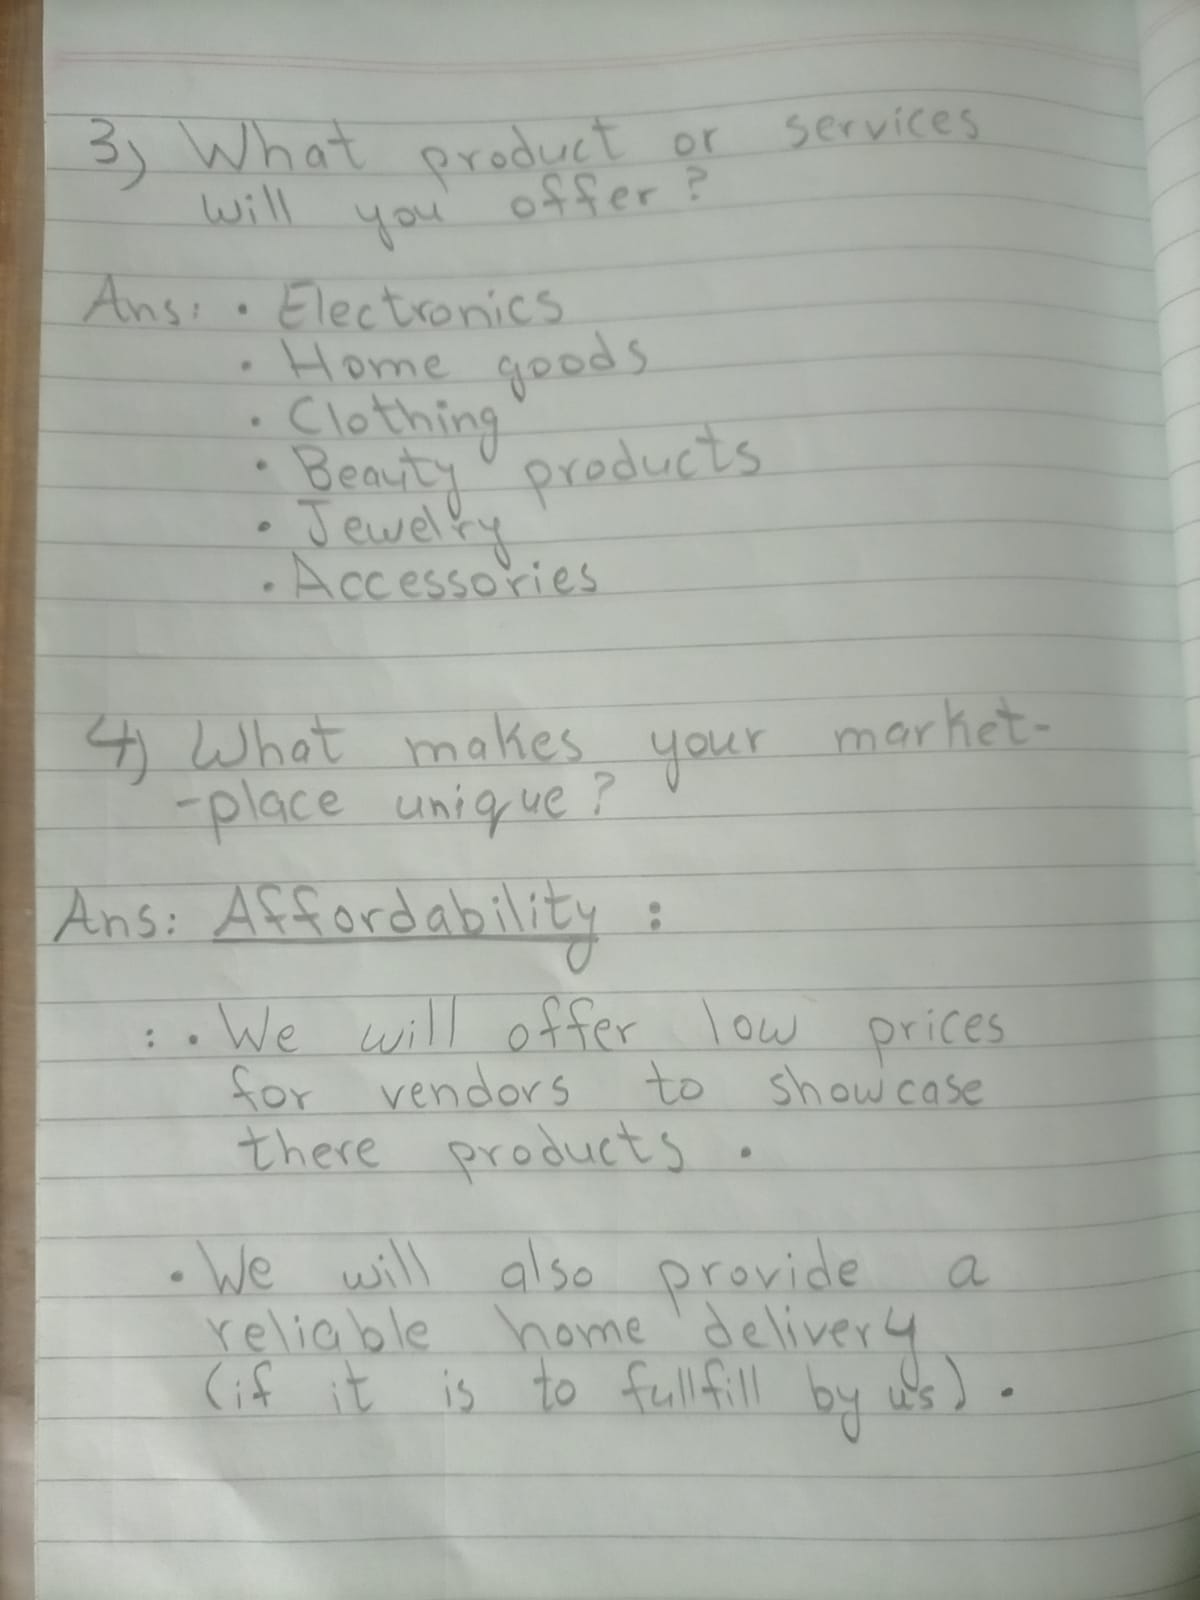 3) What product or services
will you offer?
Ans: • Electronics
• Home goods
• Clothing
• Beauty products
• Jewelry
• Accessories
4) What makes your market-
-place unique?
Ans: Affordability :
: • We will offer low prices
for vendors to showcase
there products .
• We will also provide a
reliable home delivery
(if it is to fullfill by us) .